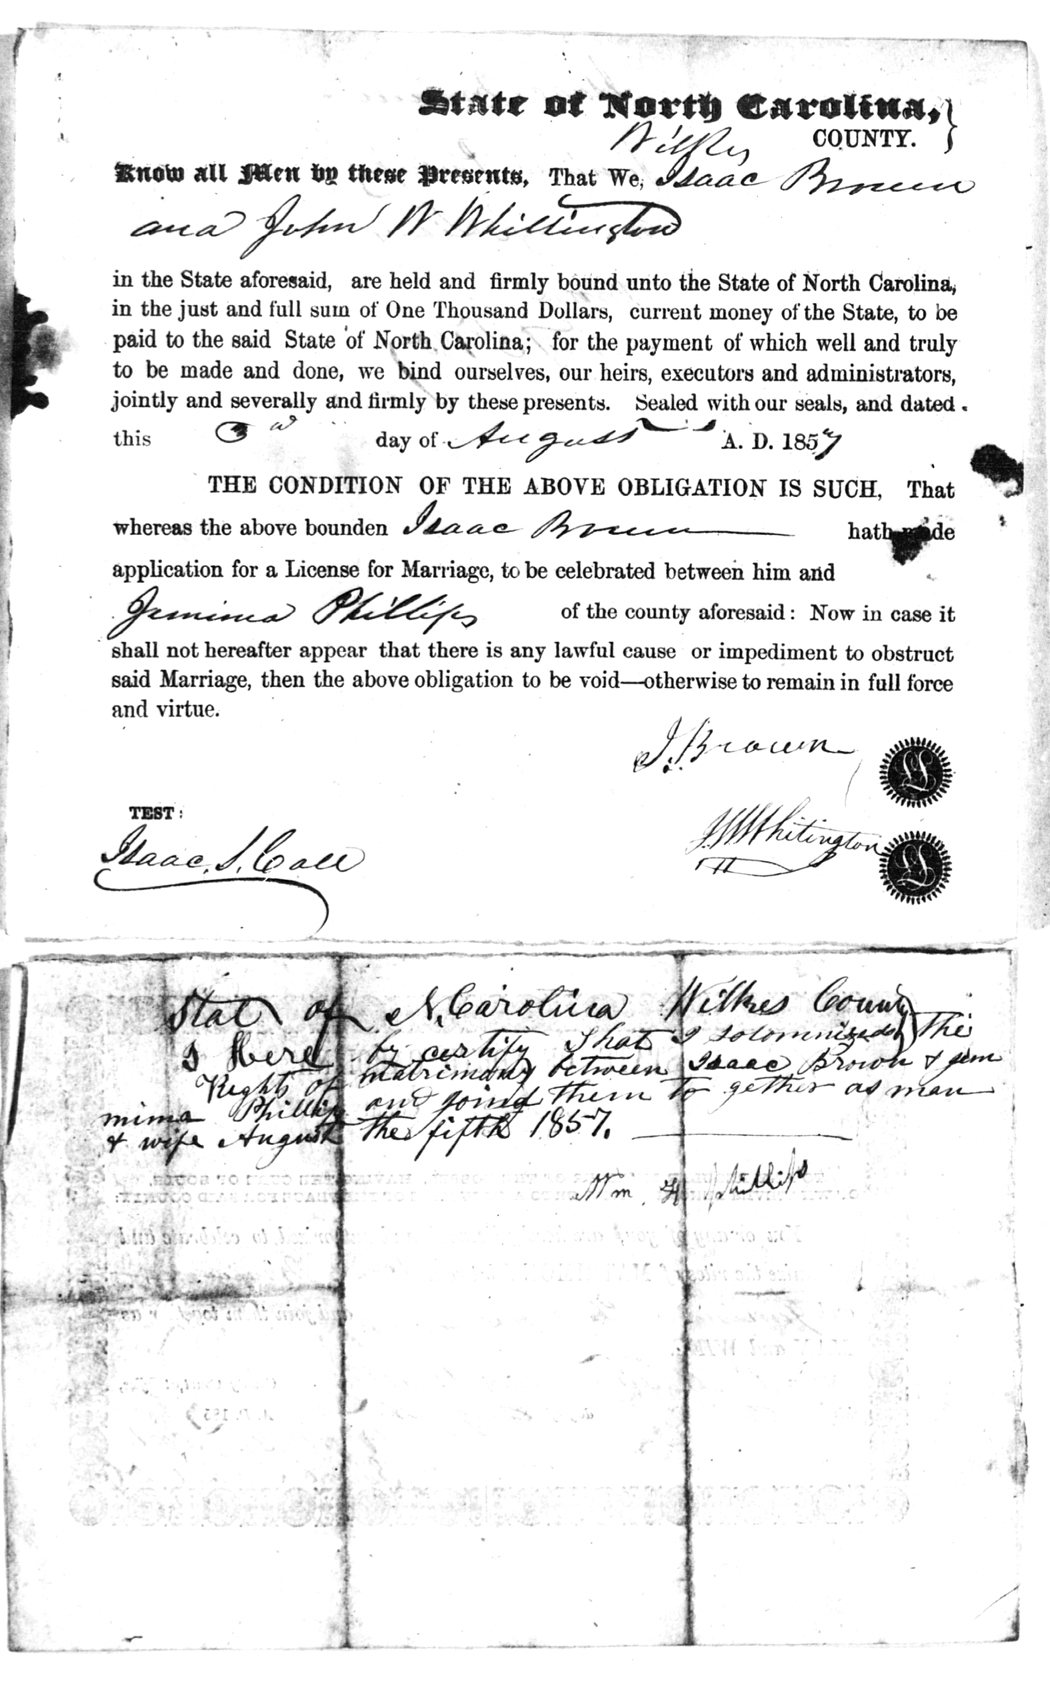 State of North Carolina,
Wilkes COUNTY.
Know all Men by these Presents, That We, Isaac Brown
and John W Whittington
in the State aforesaid, are held and firmly bound unto the State of North Carolina,
in the just and full sum of One Thousand Dollars, current money of the State, to be
paid to the said State of North Carolina; for the payment of which well and truly
to be made and done, we bind ourselves, our heirs, executors and administrators,
jointly and severally and firmly by these presents. Sealed with our seals, and dated
this 3d day of August A. D. 1857
THE CONDITION OF THE ABOVE OBLIGATION IS SUCH, That
whereas the above bounden Isaac Brown hath made
application for a License for Marriage, to be celebrated between him and
Jemima Phillips of the county aforesaid: Now in case it
shall not hereafter appear that there is any lawful cause or impediment to obstruct
said Marriage, then the above obligation to be void—otherwise to remain in full force
and virtue.
I. Brown
TEST:
J W Whitington
Isaac. S. Call
State of N. Carolina Wilkes County
I Here by certify that I solomnized the
Rights of matrimony between Isaac Brown & jem
mima Phillips and joind them to gether as man
& wife August the fifth 1857.
Wm. H Phillips